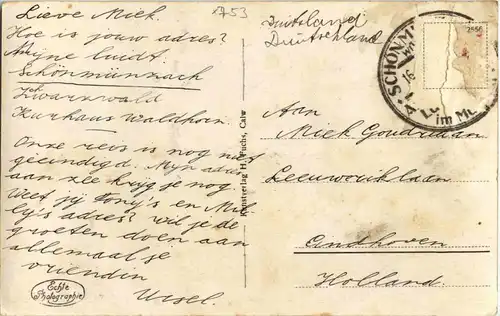 1753
Lieve Miek.
Hoe is jouw adres?
Mijne luidt.
Schönmünnach
Zwarzwald
Kurhaus Waldhorn.
Onze reis is nog niet
geeindigd. Mijn adres
aan zee krijg je nog.
Weet jij Tony's en Mil-
ly's adres? wil je de
groeten doen aan
allemaal je
vriendin
Ursel.
Echte
Photographie
Kunstverlag H. Fuchs, Calw
Duitsland
Deutschland
SCHÖNM
im Mu
Aan
Miek Goudriaan
Leeuweriklaan
Eindhoven
Holland.